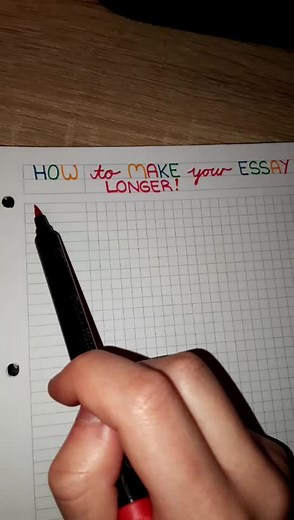 HOW to MAKE your ESSAY
LONGER!